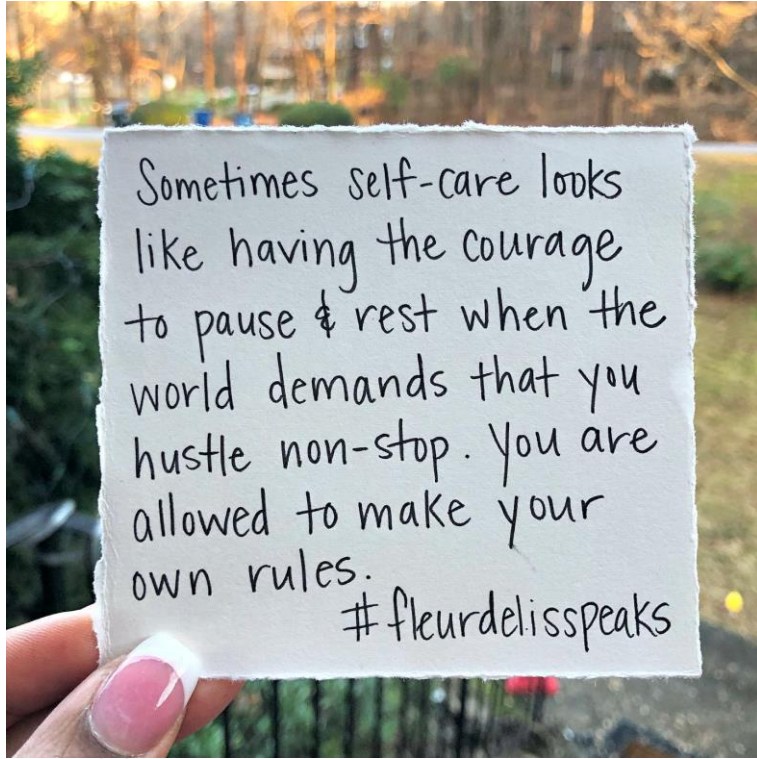 Sometimes self-care looks
like having the courage
to pause & rest when the
world demands that you
hustle non-stop. You are
allowed to make your
own rules.
#fleurdelisspeaks